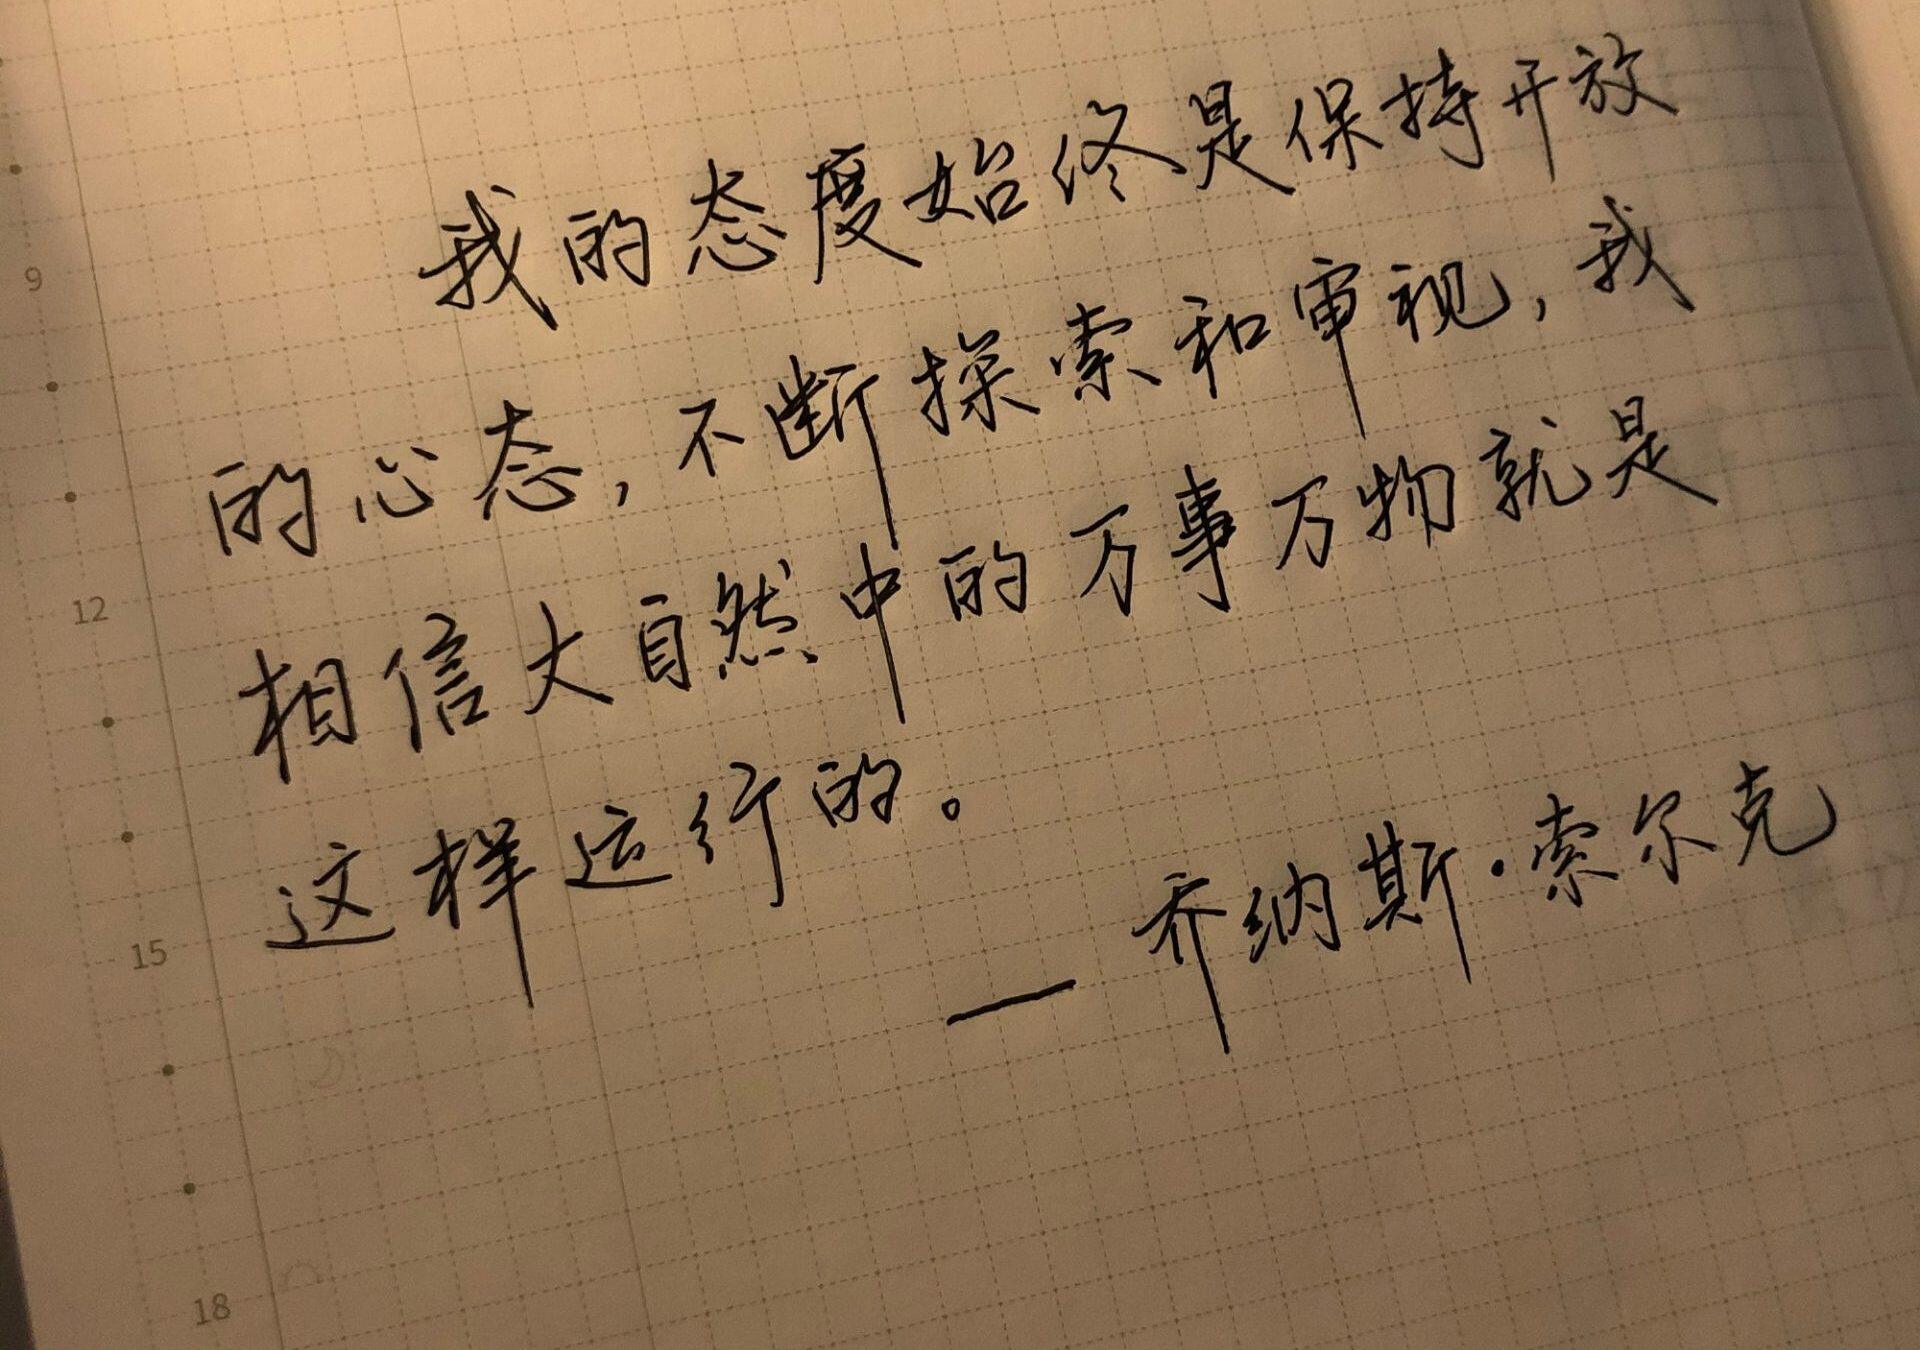 我的态度始终是保持开放
的心态,不断探索和审视,我
相信大自然中的万事万物就是
这样运行的。
— 乔纳斯·索尔克
9
12
15
18